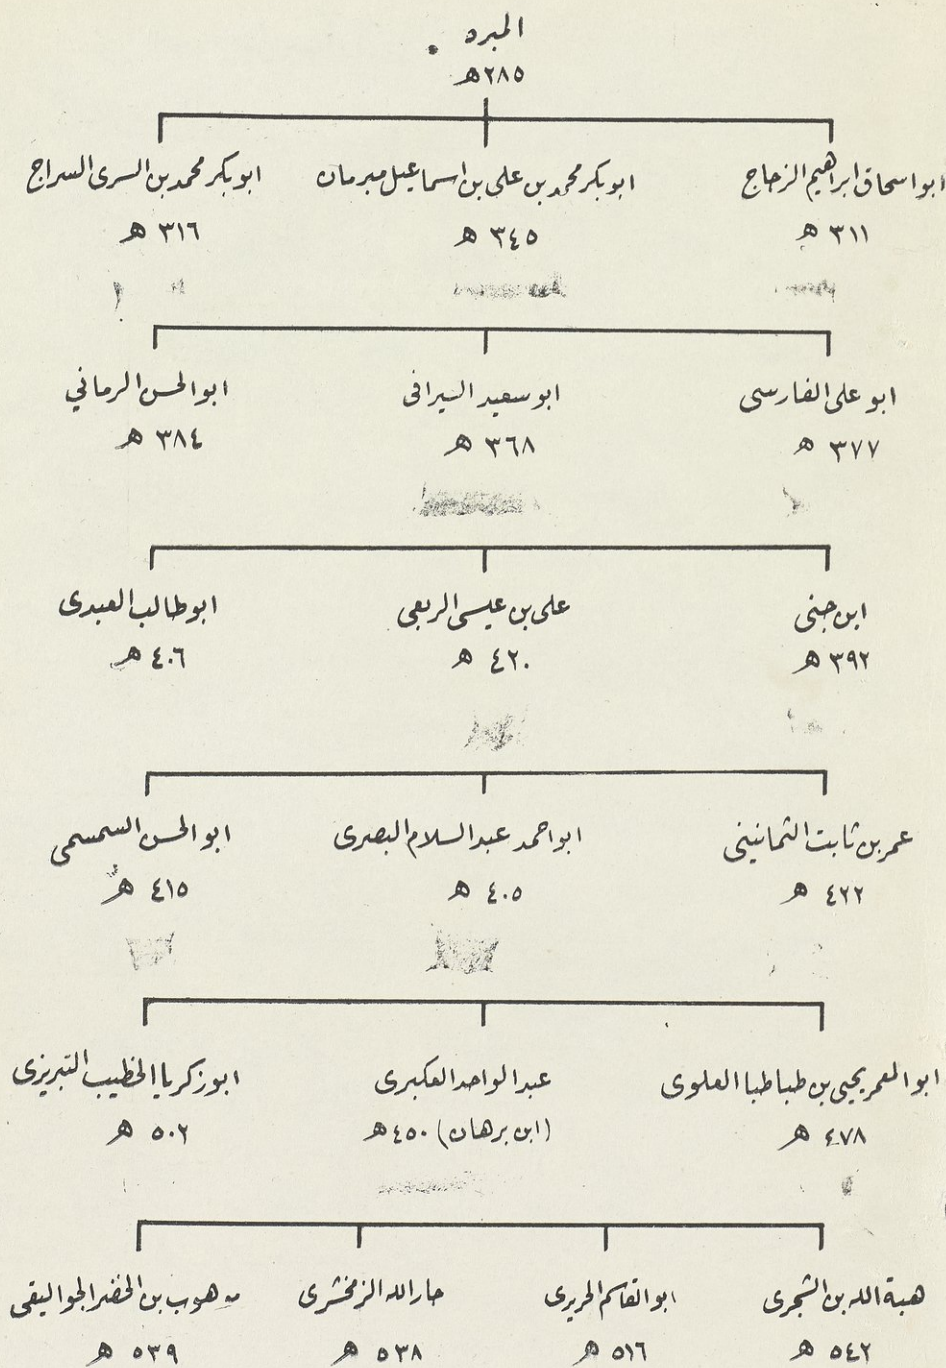 المبرد
٢٨٥ هـ
ابو اسحاق ابراهيم الزجاج
٣١١ هـ
ابو بكر محمد بن على بن اسماعيل مبرمان
٣٤٥ هـ
ابو بكر محمد بن السرى السراج
٣١٦ هـ
ابو على الفارسى
٣٧٧ هـ
ابو سعيد السيرافى
٣٦٨ هـ
ابو الحسن الرماني
٣٨٤ هـ
ابن جنى
٣٩٢ هـ
على بن عيسى الربعى
٤٢٠ هـ
ابو طالب العبدى
٤٠٦ هـ
عمر بن ثابت الثمانينى
٤٢٢ هـ
ابو احمد عبد السلام البصرى
٤٠٥ هـ
ابو الحسن السمسمى
٤١٥ هـ
ابو المعمر يحيى بن طباطبا العلوى
٤٧٨ هـ
عبد الواحد العكبرى
(ابن برهان) ٤٥٠ هـ
ابو زكريا الخطيب التبريزى
٥٠٢ هـ
هبة الله بن الشجرى
٥٤٢ هـ
ابو القاسم الحريرى
٥١٦ هـ
جار الله الزمخشرى
٥٣٨ هـ
موهوب بن الخضر الجواليقى
٥٣٩ هـ